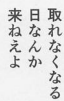 取れなくなる
日なんか
来ねえよ